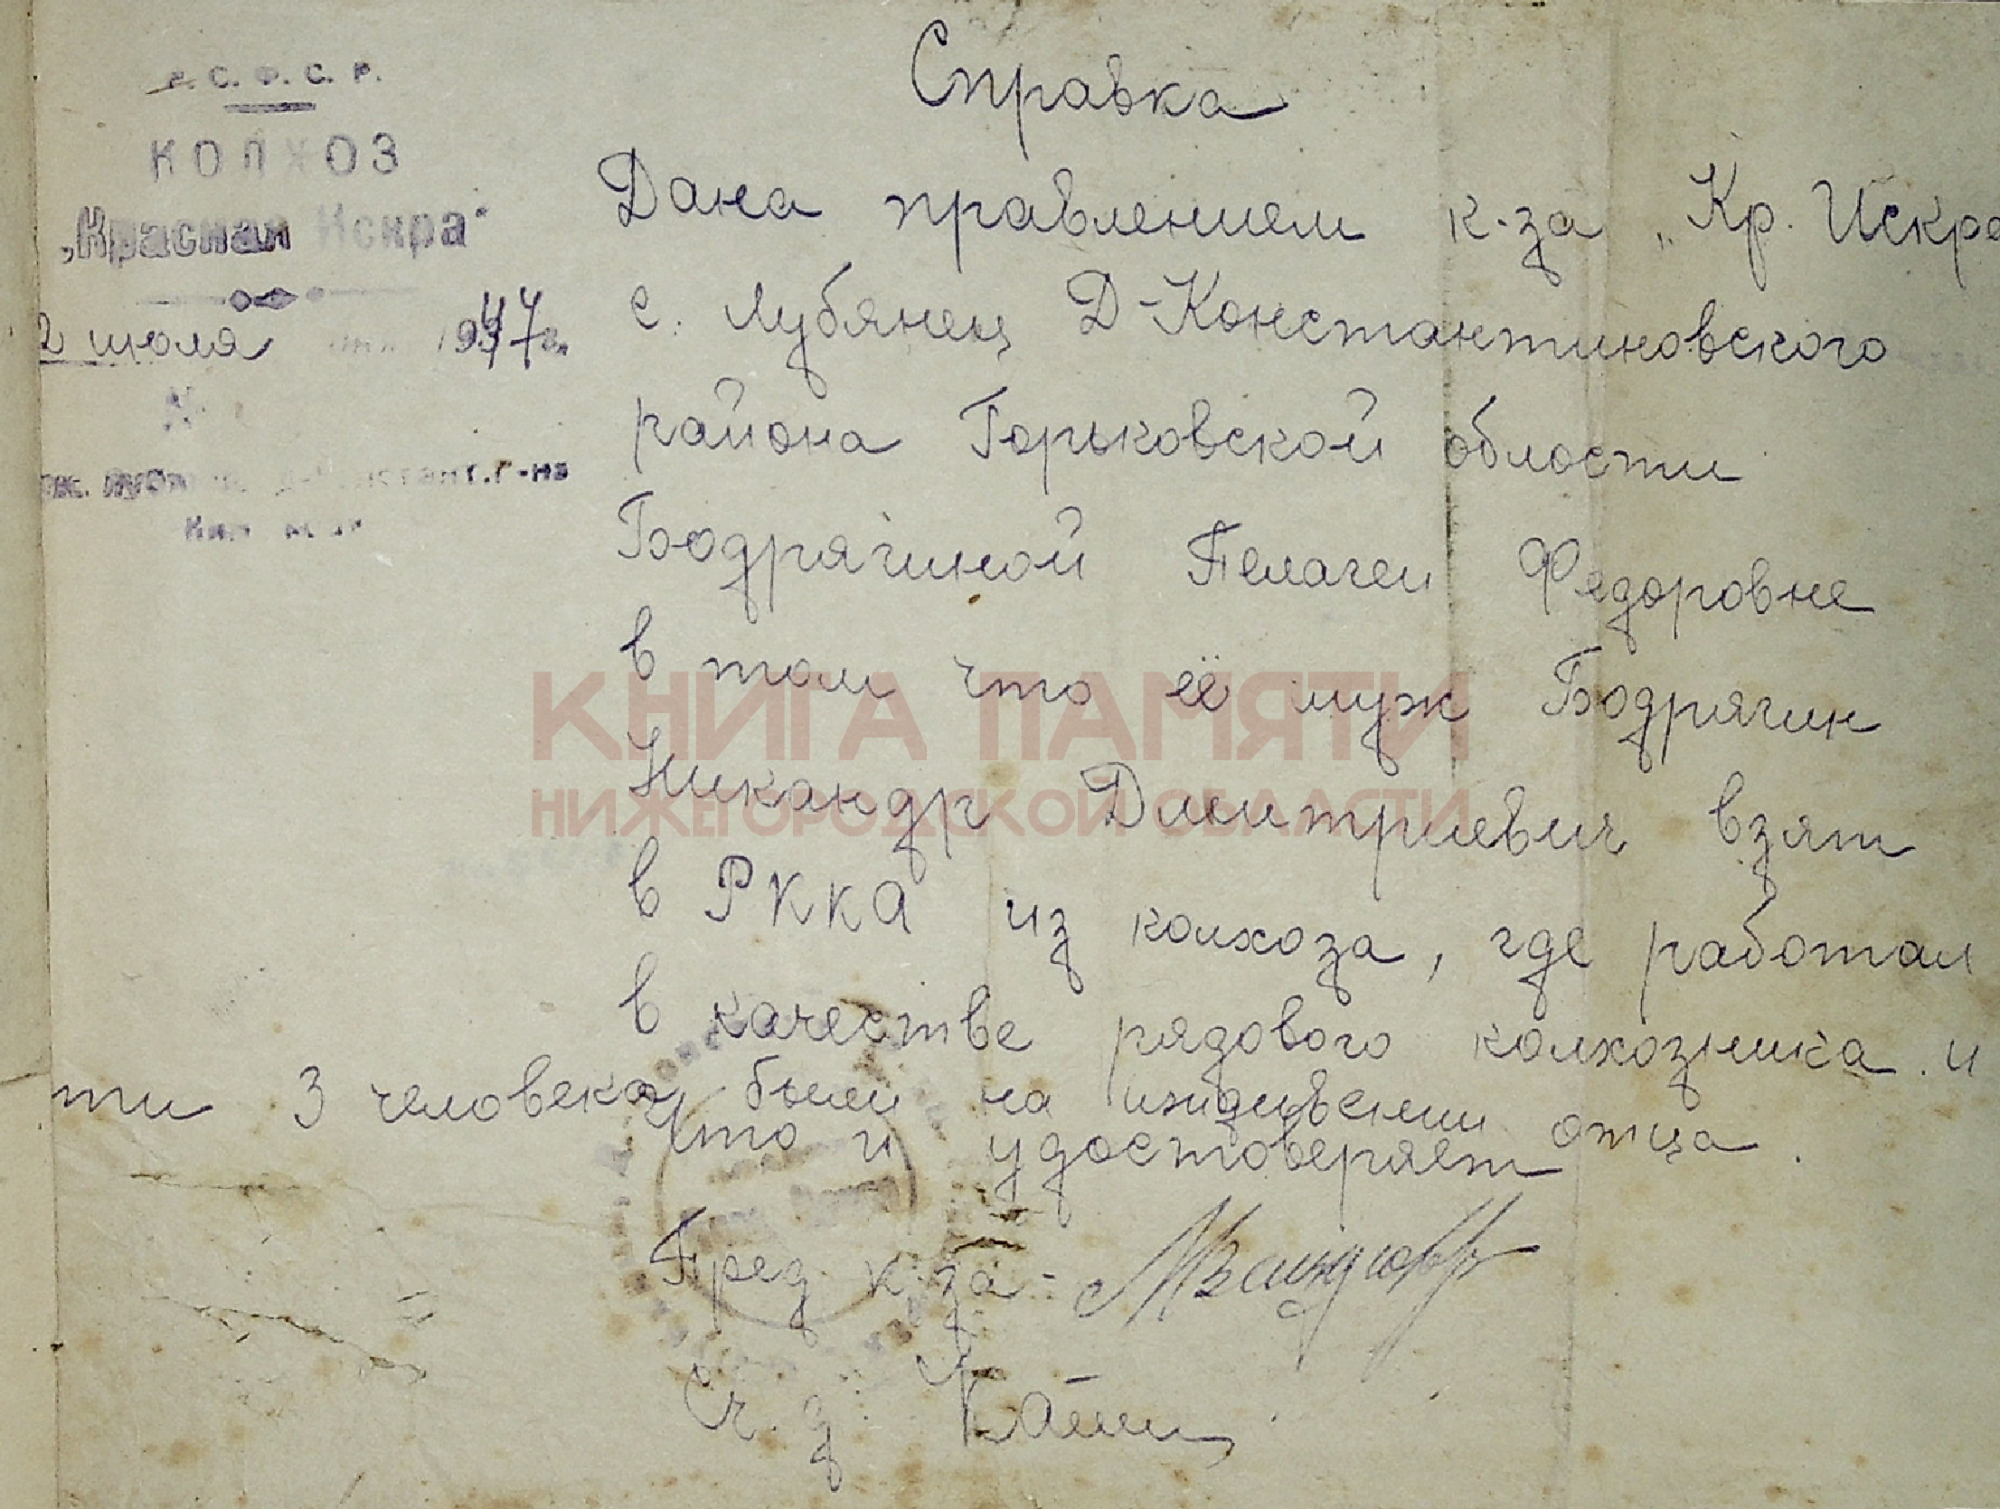 Р. С. Ф. С. Р.
КОЛХОЗ
„Красная Искра"
2 июля 1947 г.
№
Справка
Дана правлением к-за „Кр. Искра
с. Лубянец Д-Константиновского
района Горьковской области
Бодрягиной Пелагеи Федоровне
в том что её муж Бодрягин
Никандр Дмитриевич взят
в РККА из колхоза, где работал
в качестве рядового колхозника. и
ти 3 человека были на иждивении отца.
Что и удостоверяет
Пред к-за -
Сч. д
КНИГА ПАМЯТИ
НИЖЕГОРОДСКОЙ ОБЛАСТИ